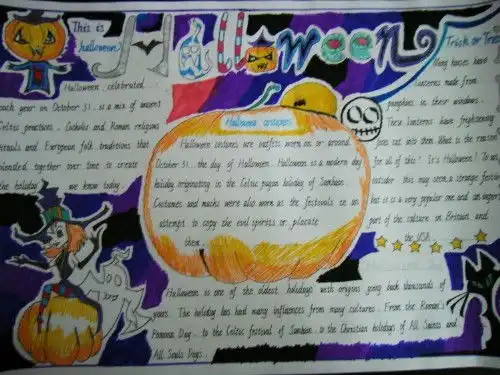 This is
halloween
Halloween
Trick or Trea
Halloween , celebrated
each year on October 31 , is a mix of ancient
Celtic practices , Catholic and Roman religious
rituals and European folk traditions that
blended together over time to create
the holiday we know today .
Halloween costumes
Halloween costumes are outfits worn on or around
October 31 , the day of Halloween . Halloween is a modern day
holiday originating in the Celtic pagan holiday of Samhain .
Costumes and masks were also worn at the festivals in an
attempt to copy the evil spirits or placate
them .
Many houses have
lanterns made from
pumpkins in their windows .
These lanterns have frightening
faces cut into them What is the reason
for all this ? It's Halloween ! To an
outsider this may seem a strange festival
but it is a very popular one and an import
part of the culture in Britain and
the USA .
Halloween is one of the oldest holidays with origins going back thousands of
years . The holiday has had many influences from many cultures . From the Roman's
Pomona Day , to the Celtic festival of Samhain , to the Christian holidays of All Saints and
All Souls Days .